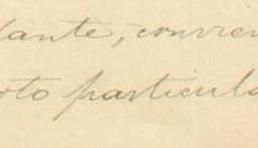 lante, convien
oto particula